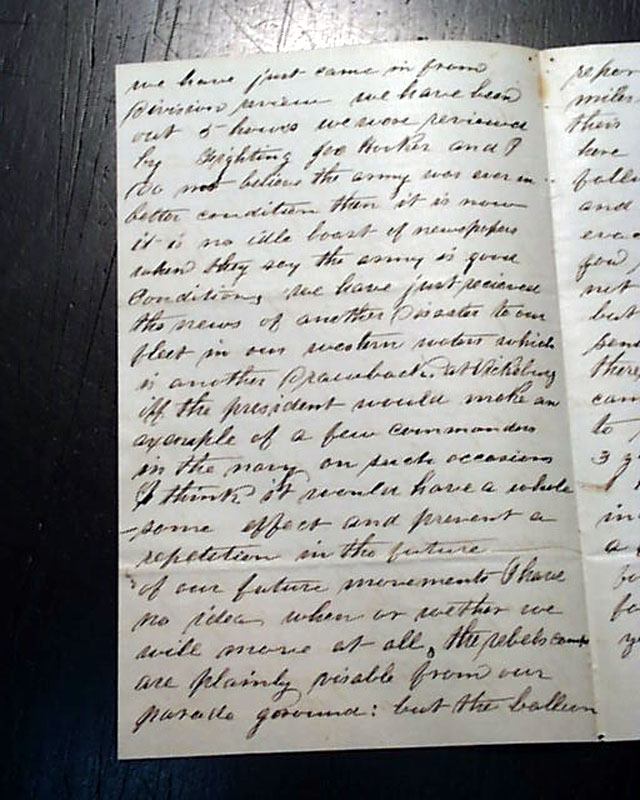 we have just came in from
Division review we have been
out 5 houres we were reviewed
by Fighting Joe Hooker and I
Do not believe the army was ever in
better condition then it is now
it is no idle boast of newspapers
when they say the army is good
Condition, we have just recieved
the news of another Disaster to our
fleet in our western waters which
is another Drawback. at Vicksburg
iff the president would make an
axample of a few commanders
in the navy on such occasions
I think it would have a whole
some effect and prevent a
repetition in the future
of our future movements I have
no idea when or wether we
will move at all, the rebels camp
are plainly visable from our
parade goround: but the balloon
repor
miles
their
have
and
not
but
there
cam
to
3
in
a